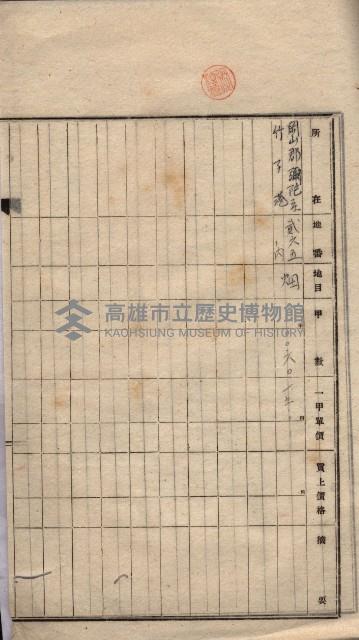 所在
地番
地目
甲數
一甲單價
買上價格
摘要
岡山郡彌陀庄
竹子港
貳六五
內
畑
高雄市立歷史博物館
KAOHSIUNG MUSEUM OF HISTORY